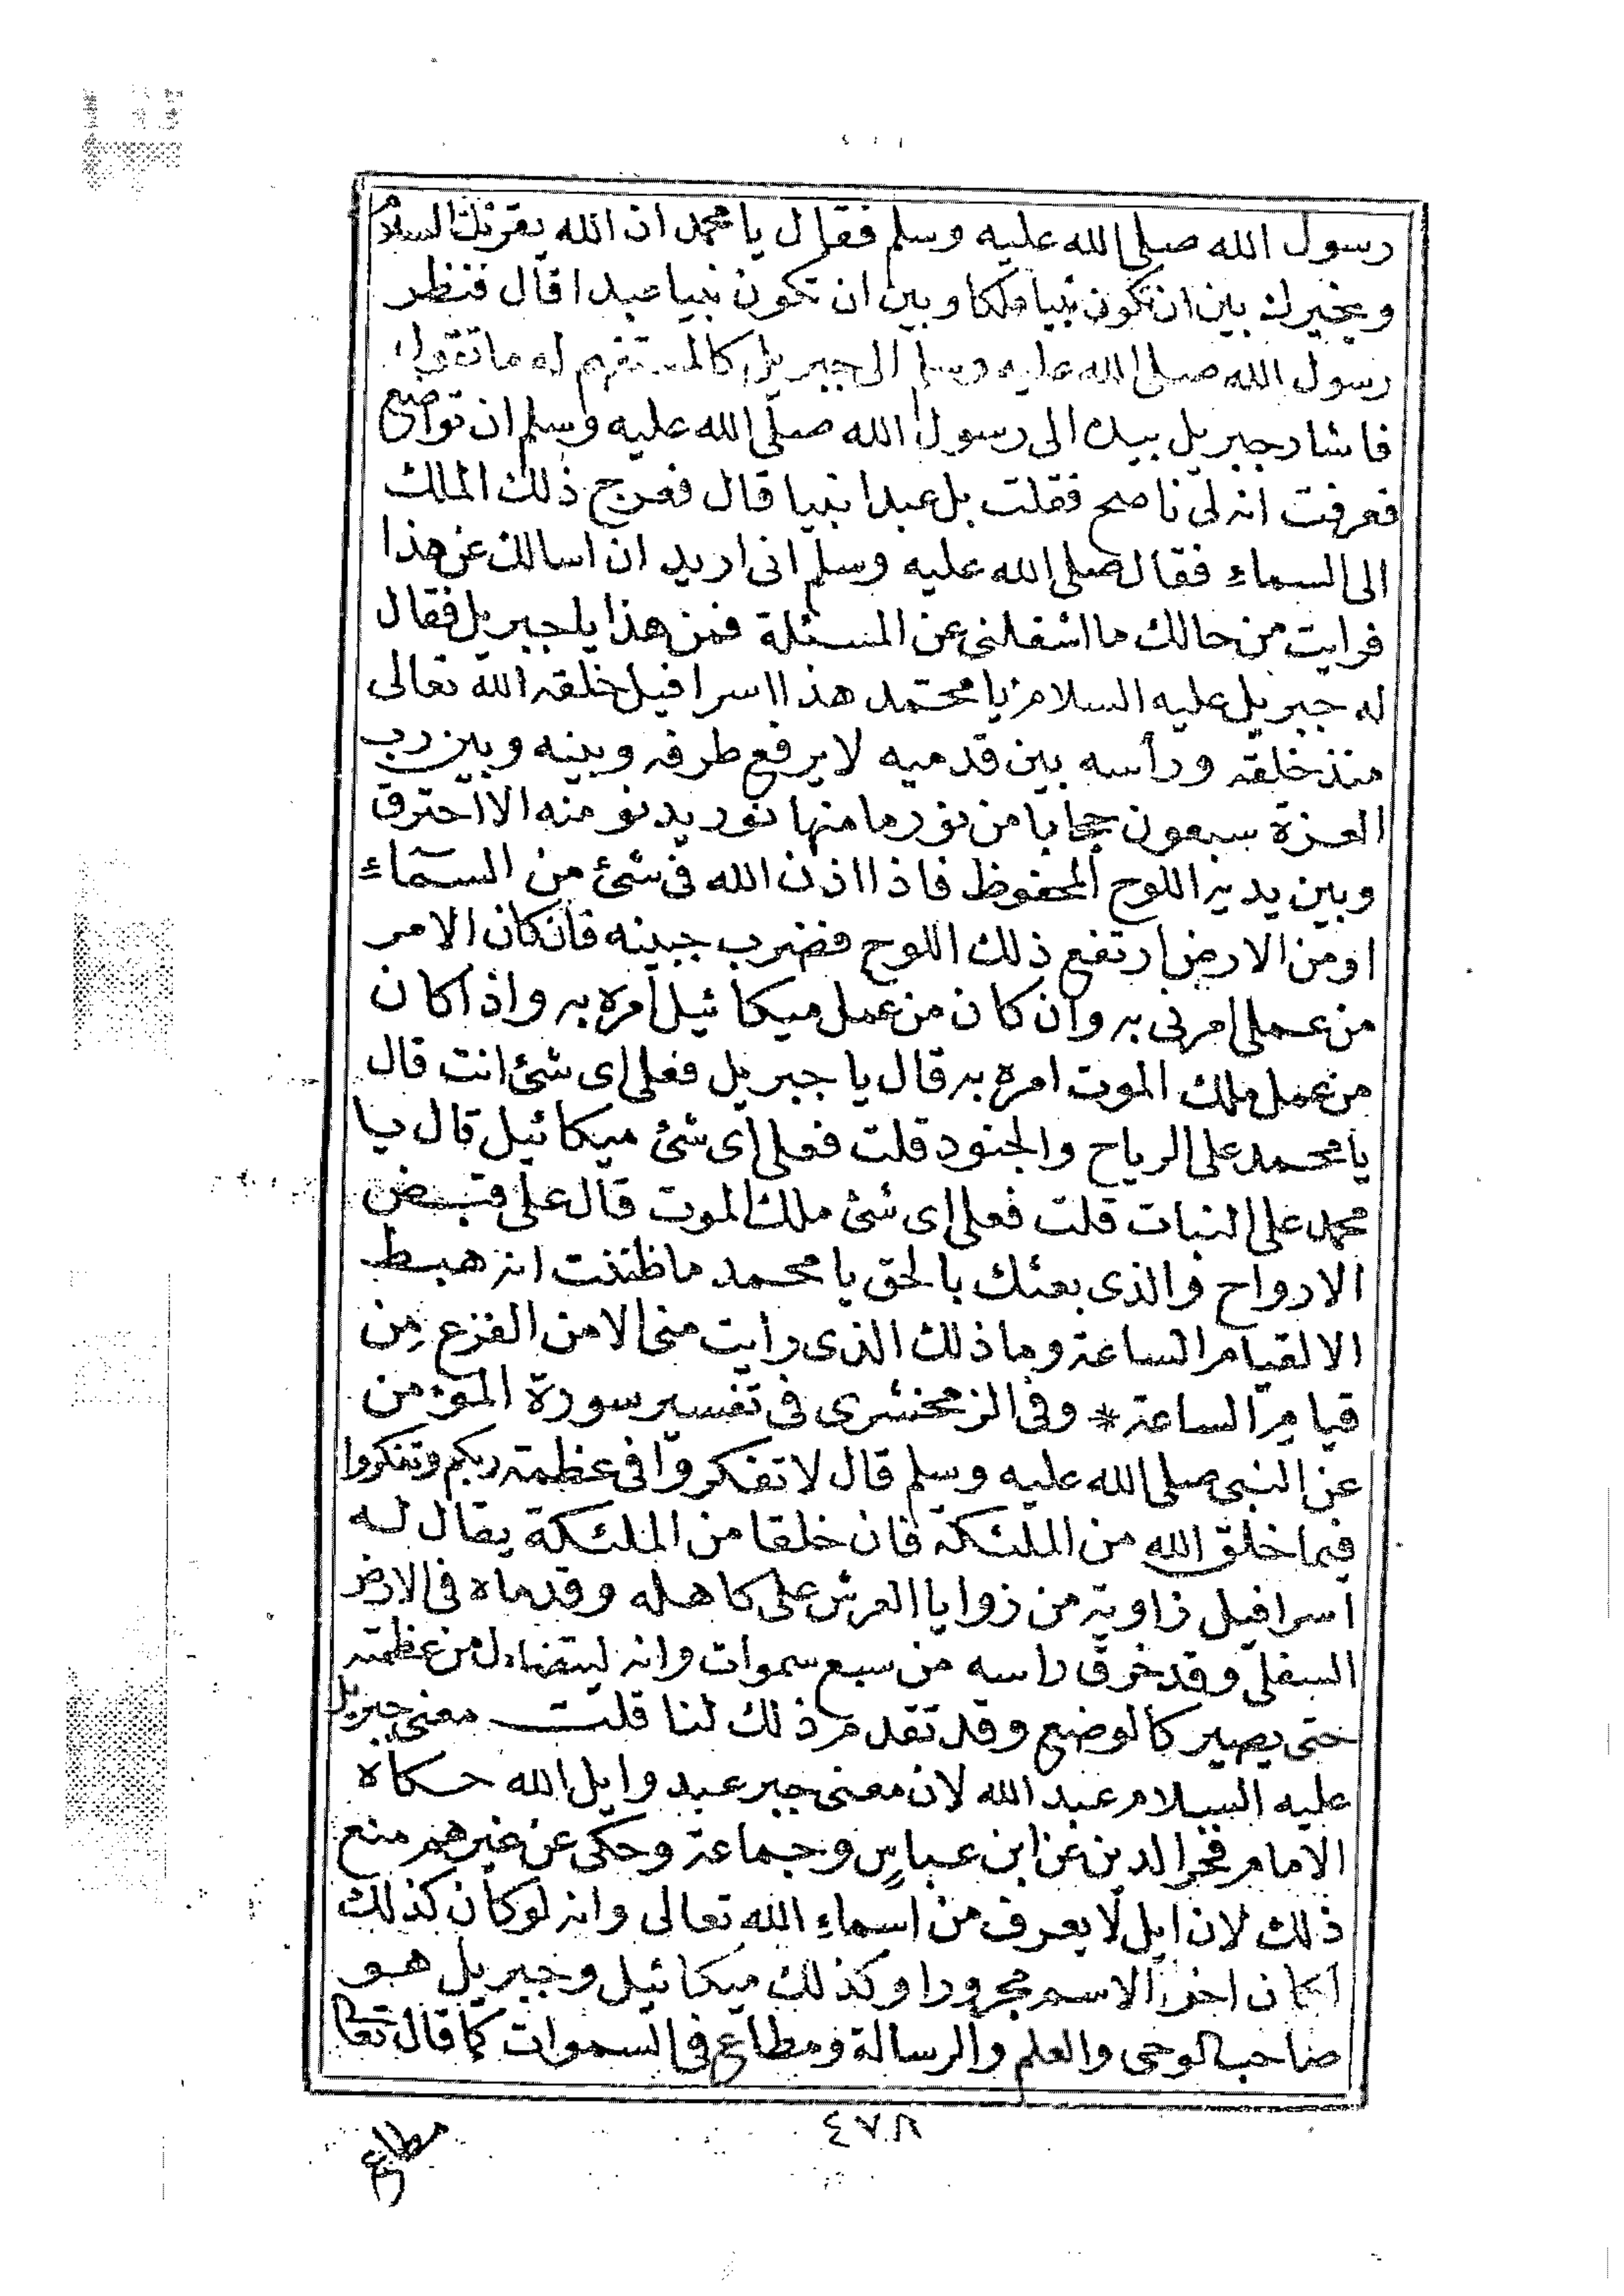 رسول الله صلى الله عليه وسلم فقال يا محمد ان الله يقرئك السلام
ويخيرك بين ان تكون نبيا ملكا وبين ان تكون نبيا عبدا قال فنظر
رسول الله صلى الله عليه وسلم الى جبريل كالمستفهم له ما تقول
فاشار جبريل بيده الى رسول الله صلى الله عليه وسلم ان تواضع
فعرفت انه لى ناصح فقلت بل عبدا نبيا قال فعرج ذلك الملك
الى السماء فقال صلى الله عليه وسلم انى اريد ان اسالك عن هذا
فرايت من حالك ما اشغلنى عن المسئلة فمن هذا يا جبريل فقال
له جبريل عليه السلام يا محمد هذا اسرافيل خلقه الله تعالى
منذ خلقه وراسه بين قدميه لا يرفع طرفه وبينه وبين رب
العزة سبعون حجابا من نور ما منها نور يدنو منه الا احترق
وبين يديه اللوح المحفوظ فاذا اذن الله فى شئ من السماء
او من الارض ارتفع ذلك اللوح فضرب جبينه فان كان الامر
من عملى امرنى به وان كان من عمل ميكائيل امره به واذا كان
من عمل ملك الموت امره به قال يا جبريل فعلى اى شئ انت قال
يا محمد على الرياح والجنود قلت فعلى اى شئ ميكائيل قال يا
محمد على النبات قلت فعلى اى شئ ملك الموت قال على قبض
الارواح والذى بعثك بالحق يا محمد ما ظننت انه هبط
الا لقيام الساعة وما ذلك الذى رايت منى الا من الفزع من
قيام الساعة * وفى الزمخشرى فى تفسير سورة المؤمن
عن النبى صلى الله عليه وسلم قال لا تفكروا فى عظمة ربكم وتفكروا
فيما خلق الله من الملئكة فان خلقا من الملئكة يقال له
اسرافيل زاوية من زوايا العرش على كاهله وقدماه فى الارض
السفلى وقد خرق راسه من سبع سموات وانه ليتضاءل من عظمته
حتى يصير كالوضع وقد تقدم ذلك لنا قلت معنى جبريل
عليه السلام عبد الله لان معنى جبر عبد وايل الله حكاه
الامام فخر الدين عن ابن عباس وجماعة وحكى عن غيرهم منع
ذلك لان ايل لا يعرف من اسماء الله تعالى وانه لو كان كذلك
لكان اخر الاسم مجرورا وكذلك ميكائيل وجبريل هو
صاحب الوحى والعلم والرسالة ومطاع فى السموات كما قال تعالى
٤٧٨
مطاع